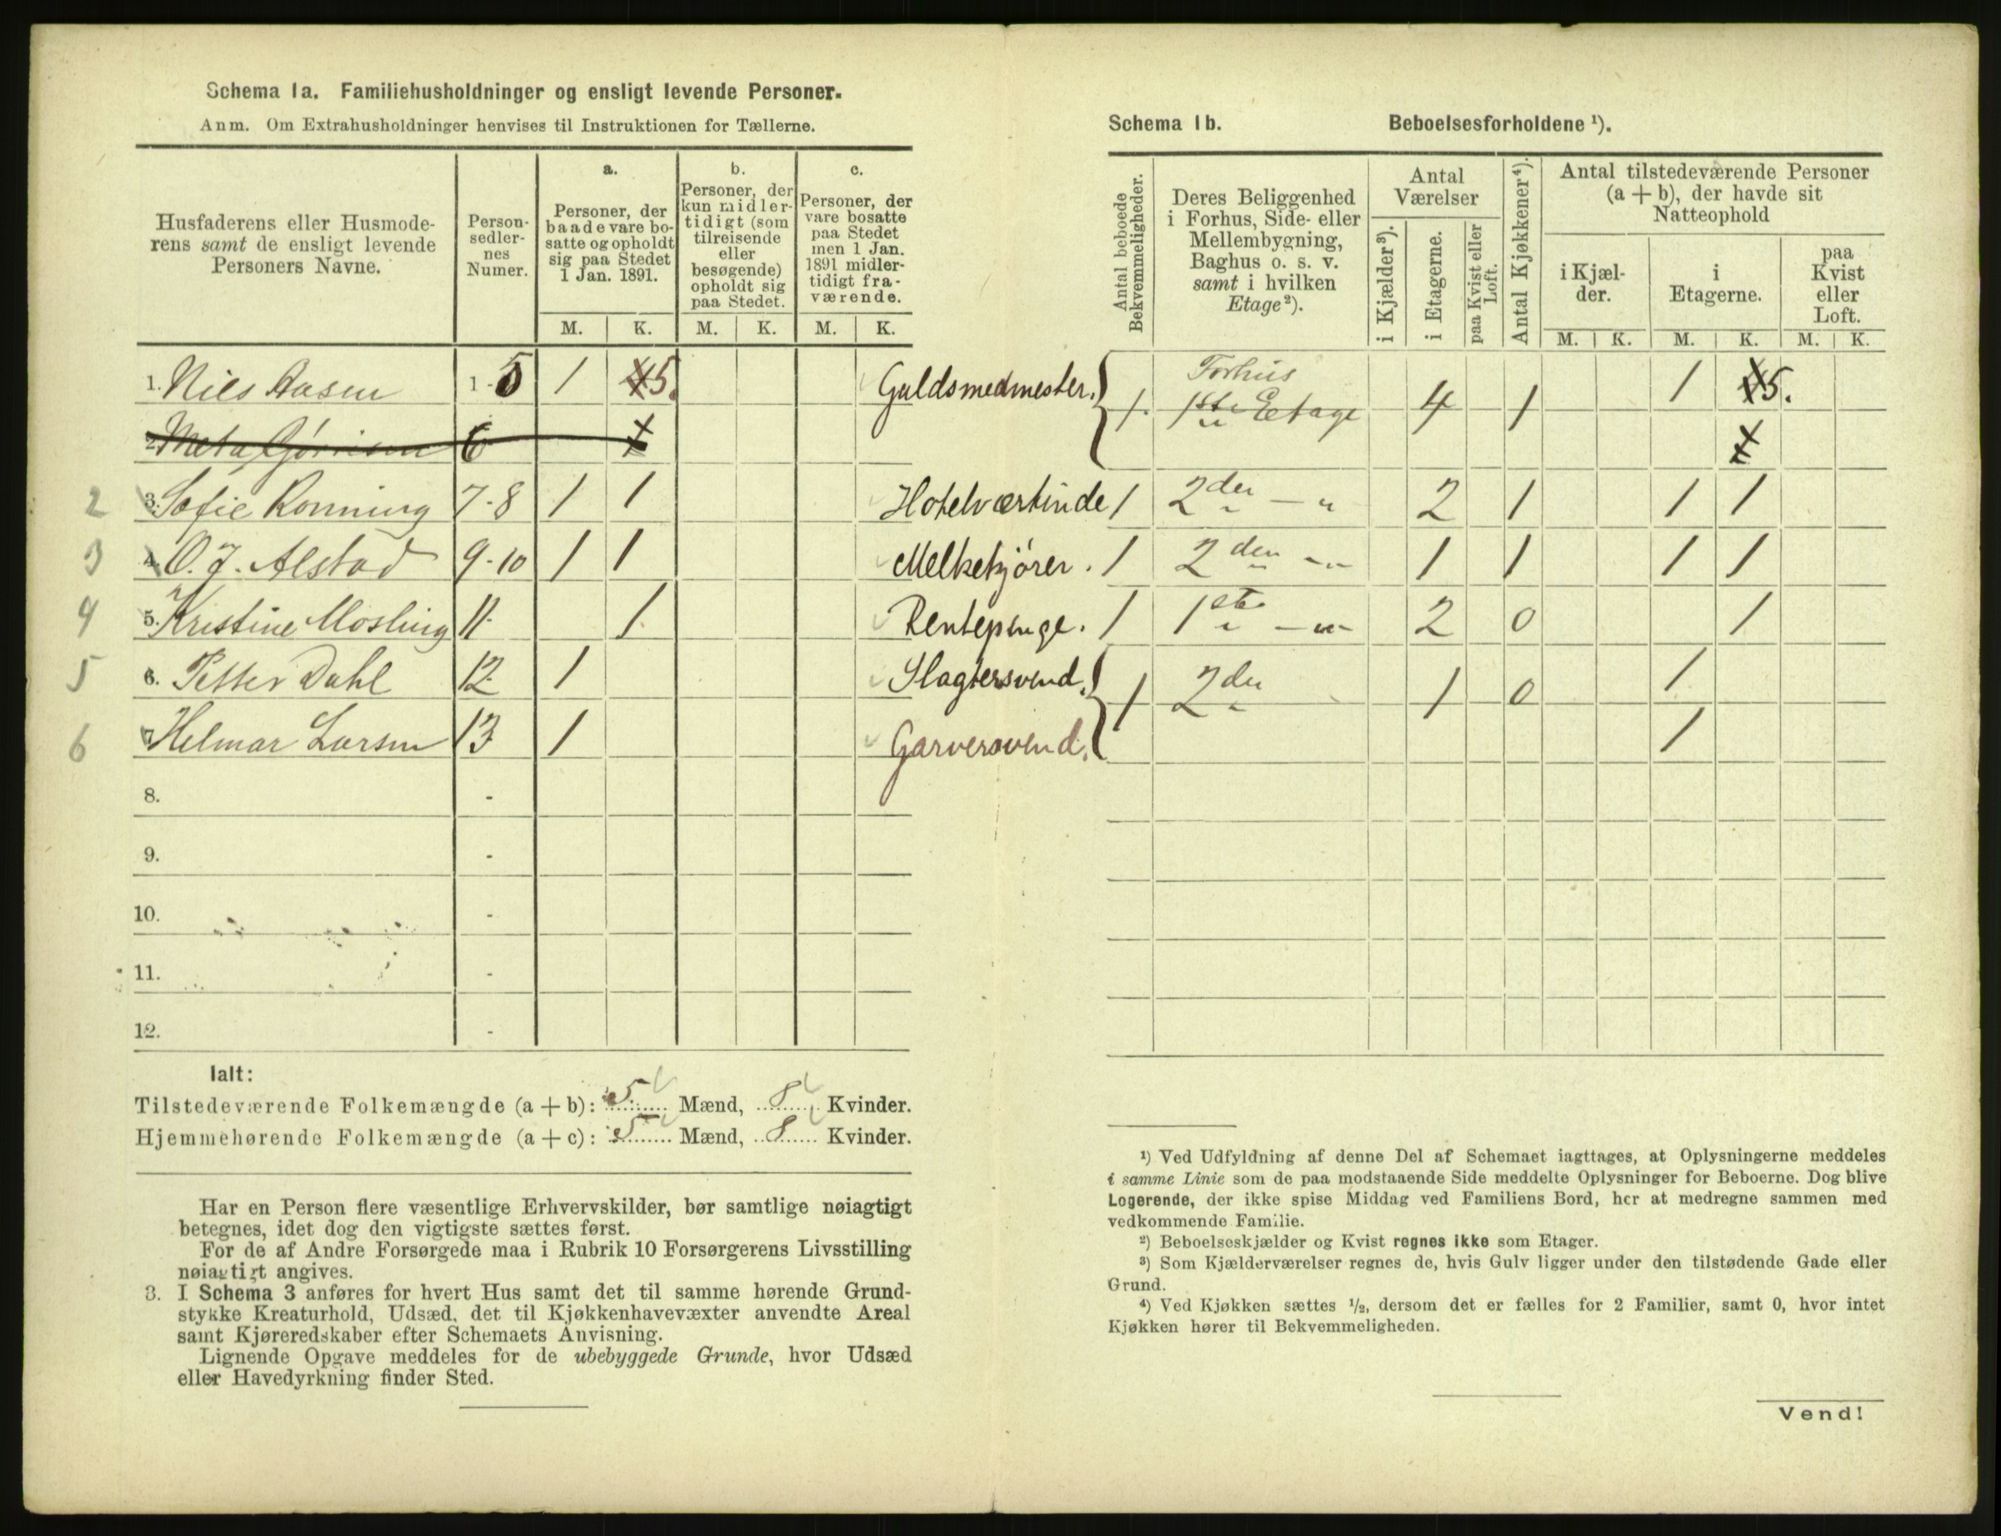 Schema 1a. Familiehusholdninger og ensligt levende Personer.
Anm. Om Extrahusholdninger henvises til Instruktionen for Tællerne.
Husfaderens eller Husmode-
rens samt de ensligt levende
Personers Navne.
Person-
sedler-
nes
Numer.
a.
Personer, der
baade vare bo-
satte og opholdt
sig paa Stedet
1 Jan. 1891.
b.
Personer, der
kun midler-
tidigt (som
tilreisende
eller
besøgende)
opholdt sig
paa Stedet.
c.
Personer, der
vare bosatte
paa Stedet
men 1 Jan.
1891 midler-
tidigt fra-
værende.
M. K. M. K. M. K.
1. Nils Aasen 1-5 1 5. Guldsmedmester.
2. Meta 6
2 3. Sofie Rønning 7-8 1 1 Hotelværtinde
3 4. O. J. Alstad 9-10 1 1 Melkekjører.
4 5. Kristine Mosling 11- 1 Rentepenge.
5 6. Petter Dahl 12- 1 Slagtersvend.
6 7. Helmar Larsen 13- 1 Garversvend.
8. -
9. -
10. -
11. -
12. -
Ialt:
Tilstedeværende Folkemængde (a + b): 5 Mænd, 8 Kvinder.
Hjemmehørende Folkemængde (a + c): 5 Mænd, 8 Kvinder.
Har en Person flere væsentlige Erhvervskilder, bør samtlige nøiagtigt
betegnes, idet dog den vigtigste sættes først.
For de af Andre Forsørgede maa i Rubrik 10 Forsørgerens Livsstilling
nøiagtigt angives.
3. I Schema 3 anføres for hvert Hus samt det til samme hørende Grund-
stykke Kreaturhold, Udsæd, det til Kjøkkenhavevæxter anvendte Areal
samt Kjøreredskaber efter Schemaets Anvisning.
Lignende Opgave meddeles for de ubebyggede Grunde, hvor Udsæd
eller Havedyrkning finder Sted.
Schema 1b. Beboelsesforholdene ¹).
Antal beboede
Bekvemmeligheder.
Deres Beliggenhed
i Forhus, Side- eller
Mellembygning,
Baghus o. s. v.
samt i hvilken
Etage²).
Antal
Værelser
i Kjælder³).
i Etagerne.
paa Kvist eller
Loft.
Antal Kjøkkener⁴).
Antal tilstedeværende Personer
(a + b), der havde sit
Natteophold
i Kjæl-
der.
i
Etagerne.
paa
Kvist
eller
Loft.
M. K. M. K. M. K.
1. Forhus
1ste Etage 4 1 1 5.
1 2den — „ 2 1 1 1
1 2den — „ 1 1 1 1
1 1ste — „ 2 0 1
1 2den 1 0 1
1
¹) Ved Udfyldning af denne Del af Schemaet iagttages, at Oplysningerne meddeles
i samme Linie som de paa modstaaende Side meddelte Oplysninger for Beboerne. Dog blive
Logerende, der ikke spise Middag ved Familiens Bord, her at medregne sammen med
vedkommende Familie.
²) Beboelseskjælder og Kvist regnes ikke som Etager.
³) Som Kjælderværelser regnes de, hvis Gulv ligger under den tilstødende Gade eller
Grund.
⁴) Ved Kjøkken sættes ½, dersom det er fælles for 2 Familier, samt 0, hvor intet
Kjøkken hører til Bekvemmeligheden.
Vend!